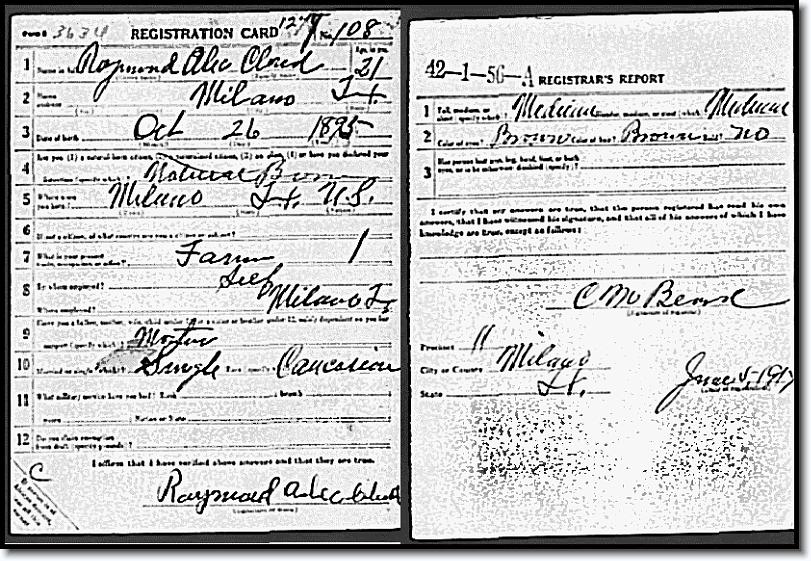 Form 1 3634 REGISTRATION CARD No. 108
1 Raymond Alec Cloud Age, in yrs. 21
2 Home address Milano Tx.
3 Date of birth Oct 26 1895
Are you (1) a natural born citizen, (2) a naturalized citizen, (3) an alien, (4) or have you declared your
4 intention (specify which)? Natural Born
5 Where were you born? Milano Tx. U.S.
6 If not a citizen, of what country are you a citizen or subject?
7 What is your present trade, occupation, or office? Farm 1
8 By whom employed? Self
Where employed? Milano Tx
9 Have you a father, mother, wife, child under 12, or a sister or brother under 12, solely dependent on you for
support (specify which)? Mother
10 Married or single (which)? Single Race (specify which)? Caucasian
11 What military service have you had? Rank branch
years Nation or State
12 Do you claim exemption from draft (specify grounds)?
I affirm that I have verified above answers and that they are true.
C
Raymond Alec Cloud
(Signature or mark)
42-1-56-A REGISTRAR'S REPORT
1 Tall, medium, or short (specify which)? Medium Slender, medium, or stout (which)? Medium
2 Color of eyes? Brown Color of hair? Brown Bald? no
3 Has person lost arm, leg, hand, foot, or both eyes, or is he otherwise disabled (specify)?
I certify that my answers are true, that the person registered has read his own
answers, that I have witnessed his signature, and that all of his answers of which I have
knowledge are true, except as follows:
C M Beard
(Signature of registrar)
Precinct 11
City or County Milano
State Tx.
June 5, 1917
(Date of registration)